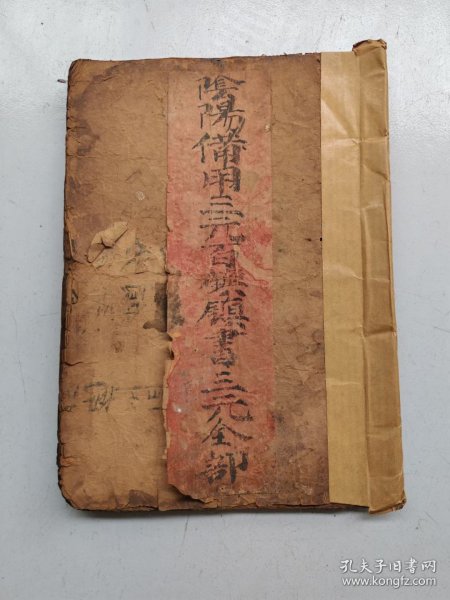 陰陽備用三元百鎮鎮書三元全部
孔夫子旧书网
www.kongfz.com